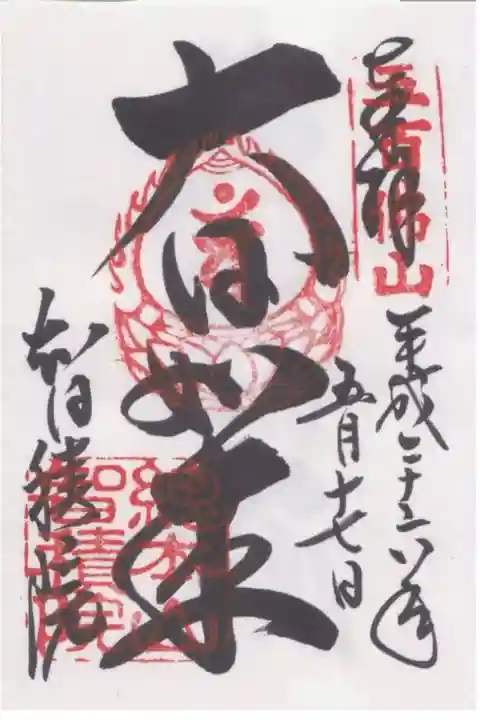 奉拝
五百佛山
平成二十六年
五月十七日
大日如来
智積院
總本山
智積院